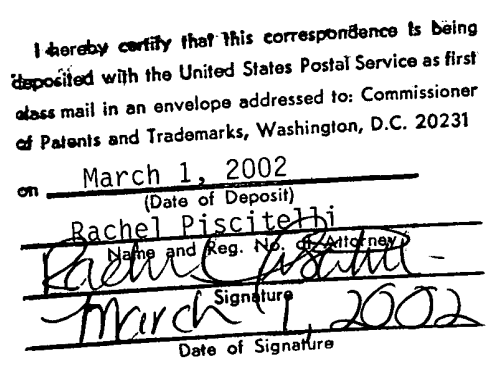 I hereby certify that this correspondence is being
deposited with the United States Postal Service as first
class mail in an envelope addressed to: Commissioner
of Patents and Trademarks, Washington, D.C. 20231
on March 1, 2002
(Date of Deposit)
Rachel Piscitelli
Name and Reg. No. of Attorney
Rachel Piscitelli
Signature
March 1, 2002
Date of Signature